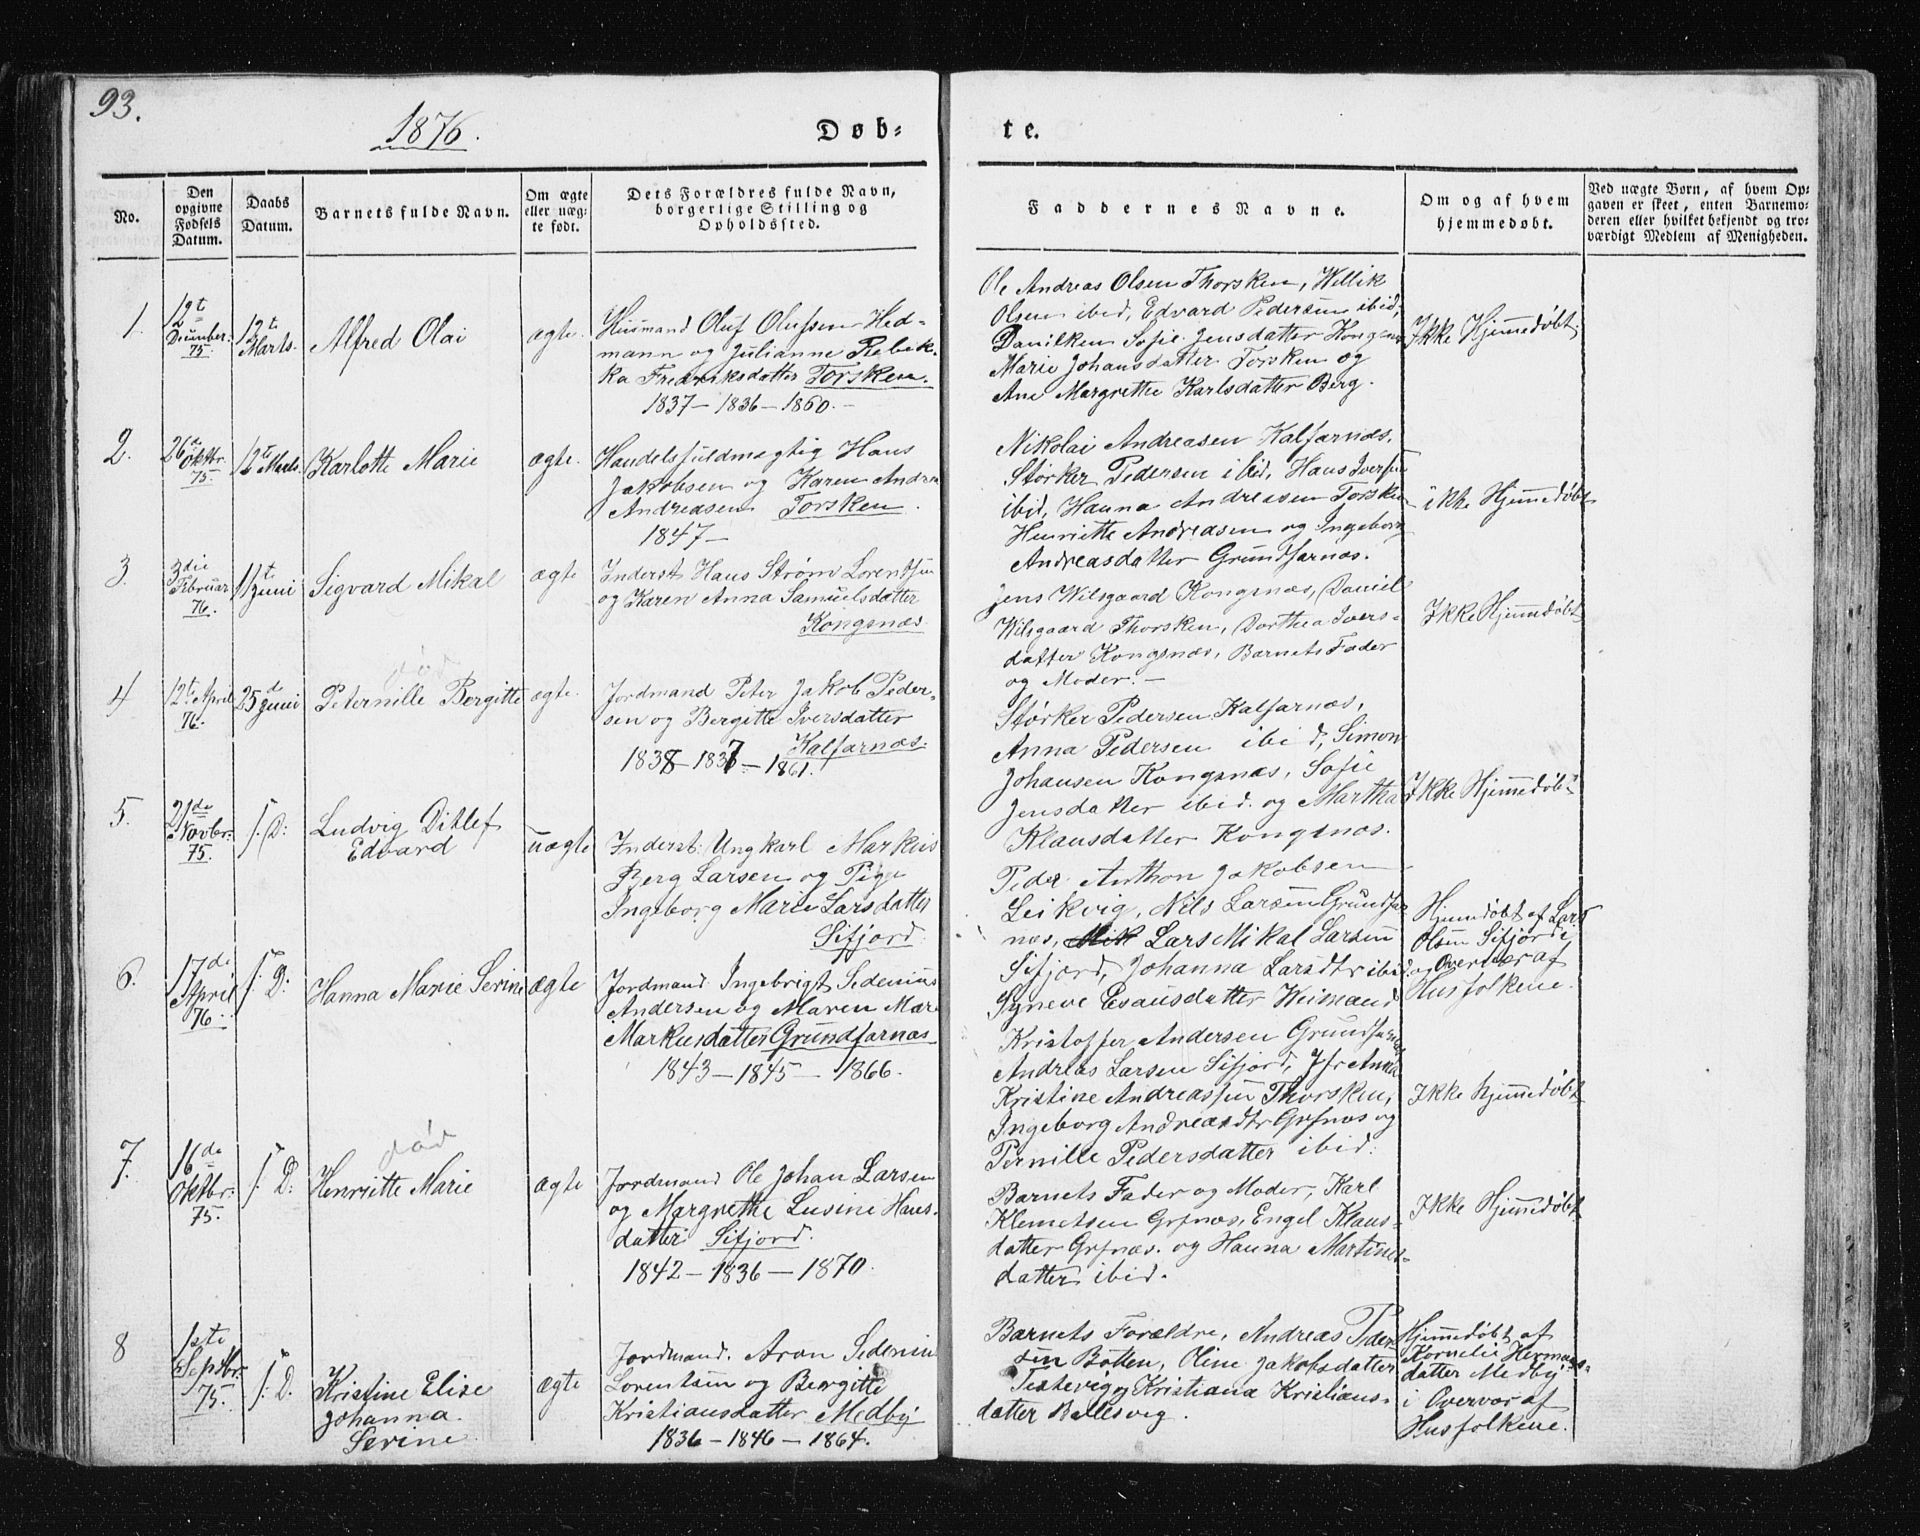 93.
1876.
Døb-
te.
No.
Den opgivne Fødsels Datum.
Daabs Datum.
Barnets fulde Navn.
Om ægte eller uæg- te født.
Dets Forældres fulde Navn, borgerlige Stilling og Opholdssted.
Faddernes Navne.
Om og af hvem hjemmedøbt.
Ved uægte Børn, af hvem Op- gaven er skeet, enten Barnemo- deren eller hvilket bekjendt og tro- værdigt Medlem af Menigheden.
1.
12te
December
75.
12te
Marts
Alfred Olai
ægte.
Huusmand Oluf Olufsen Hed-
mann og Julianne Rebek-
ka Fredriksdatter Torsken.
1837 - 1836 - 1860. -
Ole Andreas Olsen Thorsken, Willik
Olsen ibid, Edvard Pedersen ibid,
Danilken Sofie Jensdatter Kongsnæs
Marie Johansdatter Torsken og
Ane Margrethe Karlsdatter Berg.
Ikke Hjemmedøbt.
2.
26de
Oktbr.
75.
12te Marts.
Karlotte Marie
ægte.
Handelsfuldmægtig Hans
Jakobsen og Karen Andrea
Andreasen Torsken.
1847 -
Nikolai Andreasen Kalfarnæs,
Størker Pedersen ibid, Hans Iversen
ibid, Hanna Andreasen Torsken
Henriette Andreasen og Ingeborg
Andreasdatter Grundfarnæs.
ikke Hjemmedøbt
3.
3die
Februar
76.
11te
Juni
Sigvard Mikal
ægte
Inderst Hans Strøm Lorentsen
og Karen Anna Samuelsdatter
Kongsnæs
Jens Wilsgaard Kongsnæs, Daniel
Wilsgaard Thorsken, Dorthea Ivers-
datter Kongsnæs, Barnets Fader
og Moder. -
Ikke Hjemmedøbt
4
12te April
76.
25de
Juni
død
Peternille Bergitte
ægte.
Jordmand Peter Jakob Peder-
sen og Bergitte Iversdatter
Kalfarnæs.
1838 - 1837 - 1861.
Størker Pedersen Kalfarnæs,
Anna Pedersen ibid, Simon
Johansen Kongsnæs, Sofie
Jensdatter ibid. og Martha
Klausdatter Kongsnæs.
Ikke Hjemmedøbt
5.
21de
Novbr.
75.
s. D:
Ludvig Ditlef
Edvard
uægte
Inderst: Ungkarl Markus
Berg Larsen og Pige
Ingeborg Marie Larsdatter
Sifjord.
Peder Anthon Jakobsen
Leikvig, Nils Larsen Grundfar
næs, Mik Lars Mikal Larsen
Sifjord, Johanna Larsdtr ibid og
Syneve Esausdatter Heimand
Hjemmedøbt af Lars
Olsen Sifjord i
Overvær af
Husfolkene.
6.
17de
April
76
s. D:
Hanna Marie Serine
ægte
Jordmand Ingebrigt Sedenius
Andersen og Maren
Markusdatter Grundfarnæs
1843 - 1845 - 1866.
Kristoffer Andersen Grundfarnæs
Andreas Larsen Sifjord, Jfr Anna
Kristine Andreassen Thorsken,
Ingeborg Andreasdtr Grfnæs og
Pernille Pedersdatter ibid.
Ikke hjemmedøbt
7.
16de
Oktbr:
75.
s. D:
død
Henriette Marie
ægte
Jordmand Ole Johan Larsen
og Margrethe Lusine Hans-
datter Sifjord.
1842 - 1836 - 1870.
Barnets Fader og Moder, Karl
Klemetsen Grfnæs, Engel Klaus-
datter Grfnæs. og Hanna Martines-
datter ibid.
Ikke Hjemmedøbt
8
1ste
Septbr.
75.
s. D.
Kristine Elise
Johanna
Serine
ægte
Jordmand. Aron Sedenius
Lorentsen og Bergitte
Kristiansdatter Medby
1836 - 1846 - 1864.
Barnets Forældre, Andreas Peder
sen Botten, Oline Jakobsdatter
Testevig og Kristiana Kristians-
datter Ballesvig.
Hjemmedøbt af
Kornelie Hermans-
datter Medby
i Overvær af
Husfolkene.